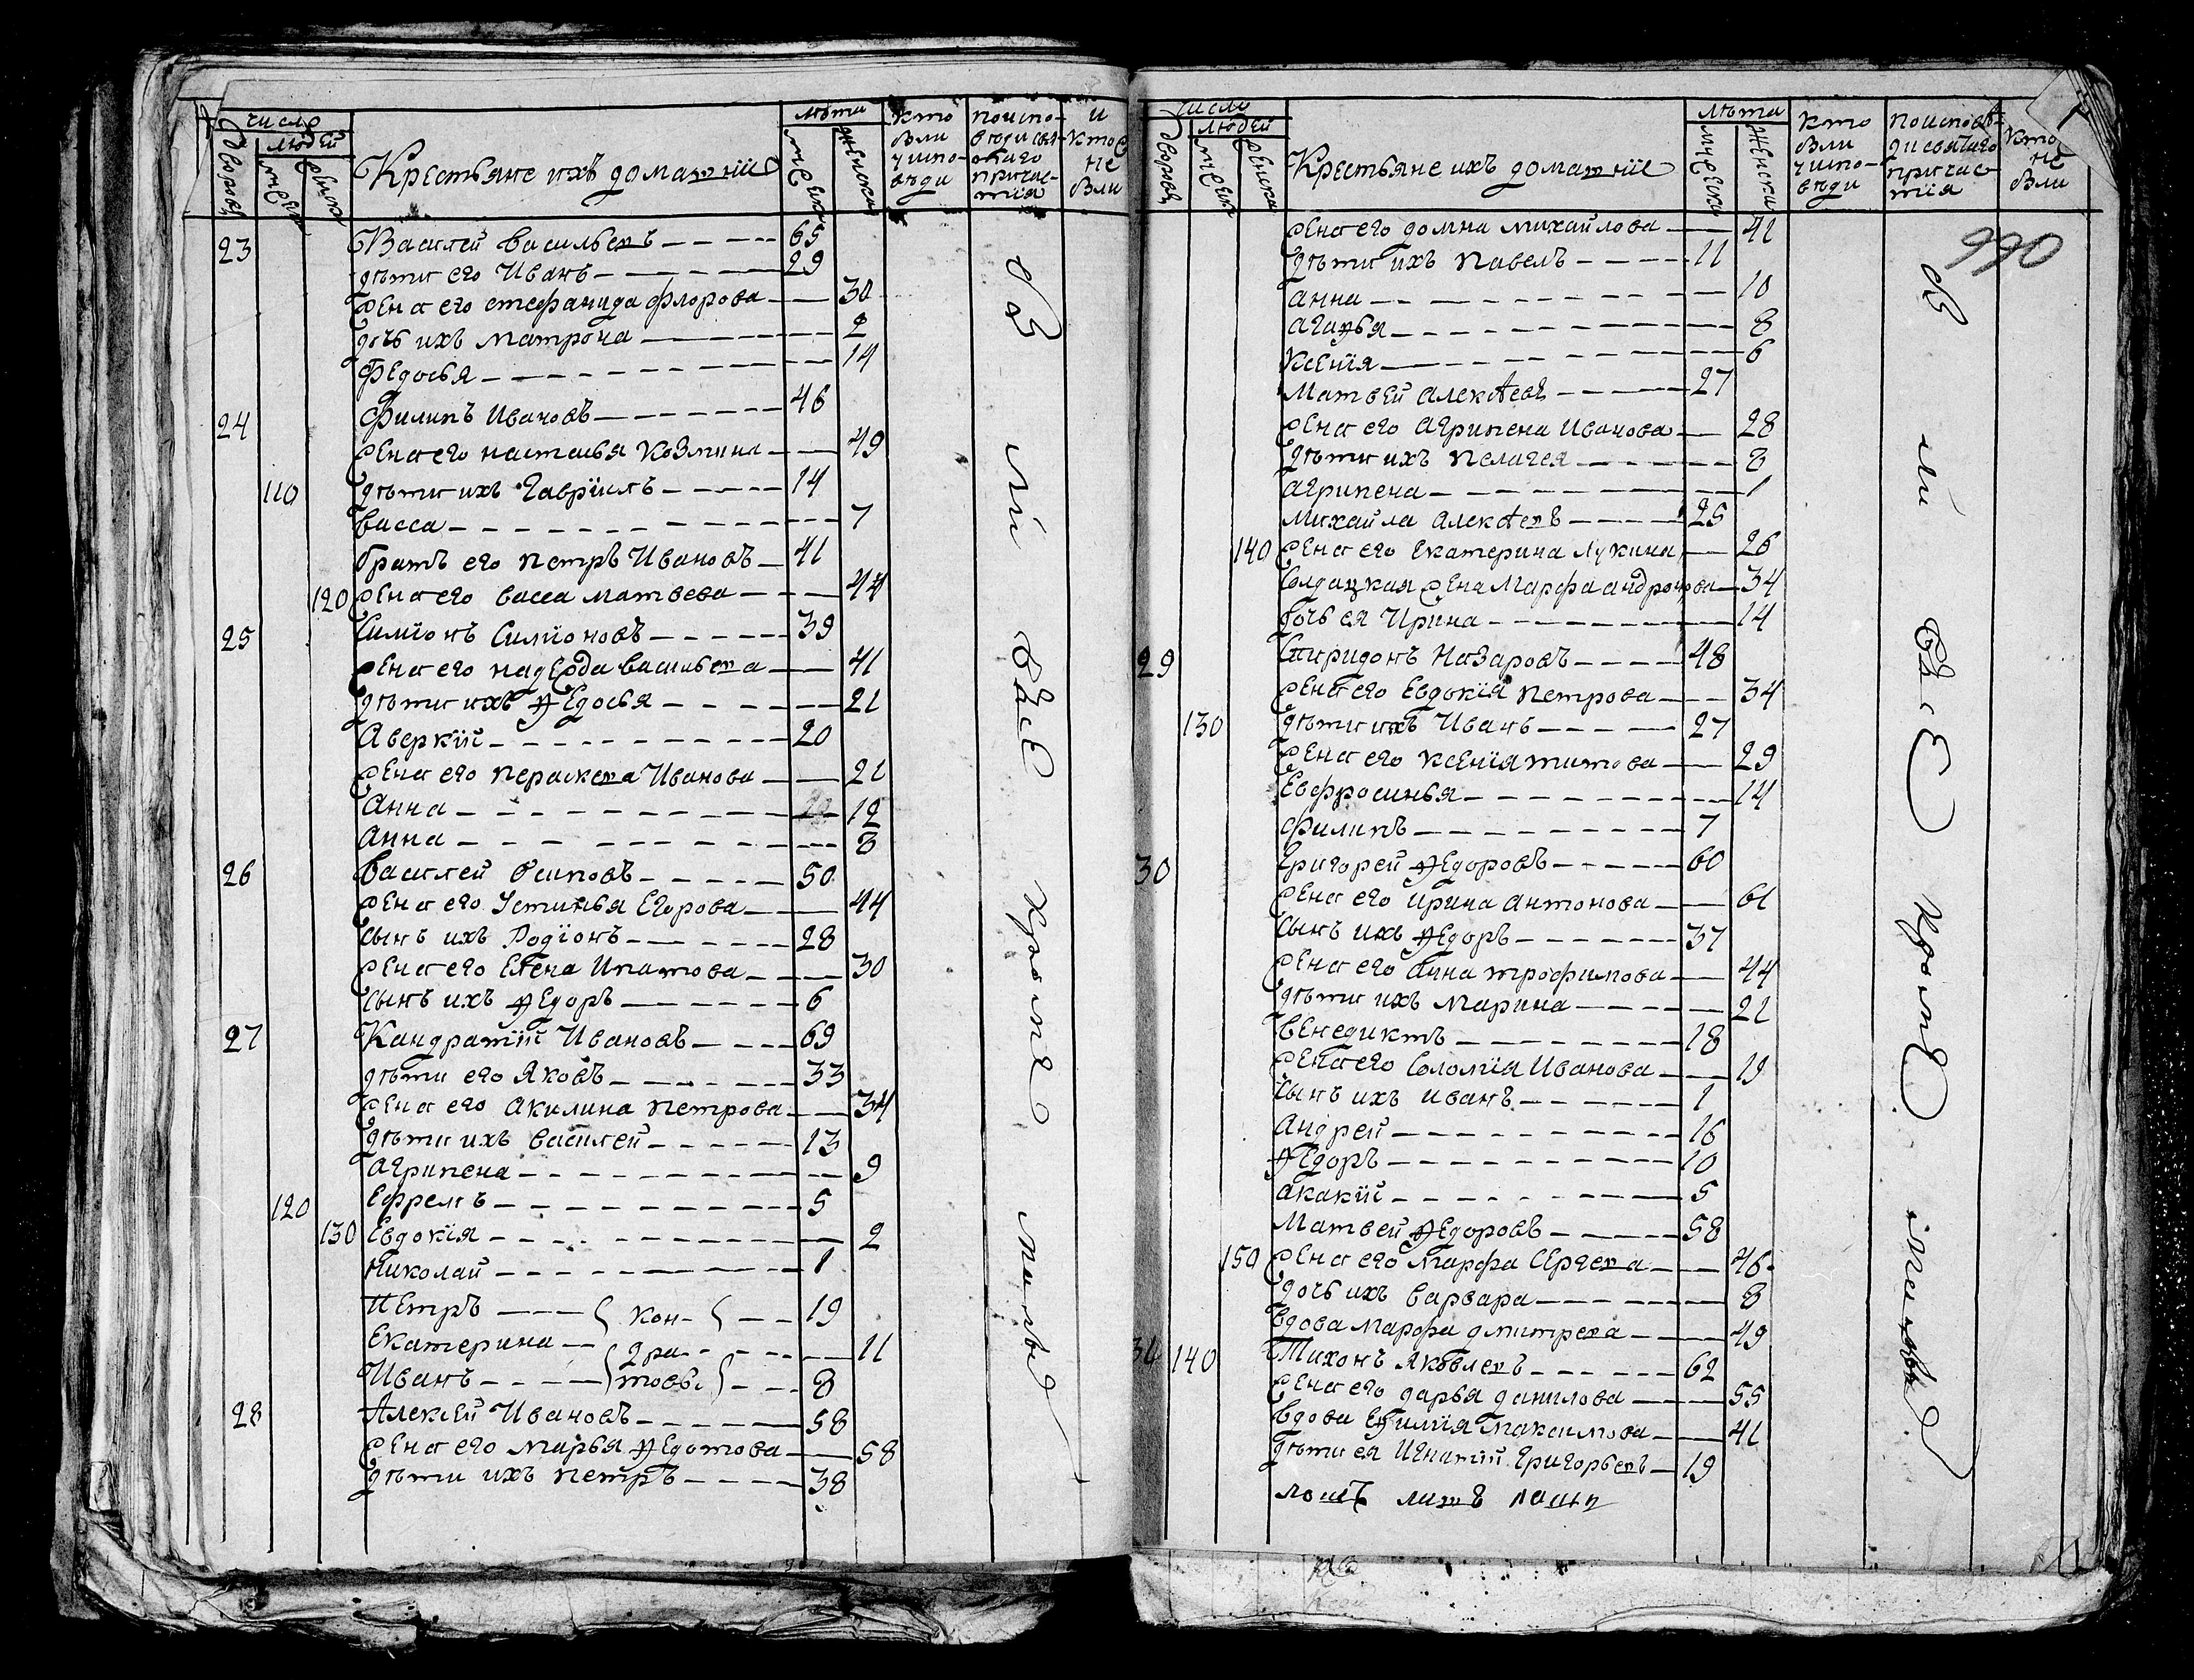 число
людей
дворовъ
мужеск
женска
Крестьяне ихъ домашнïе
лѣта
мужеска
женска
кто
были
у испо-
веди
по испо-
веди свя-
таго
причас-
тïя
и
кто
не
были
23 Василей Васильевъ 65
дѣти его Иванъ 29
жена его Стефанида Флорова 30
дочь ихъ Матрона 2
Федосья 14
24 Филипъ Ивановъ 46
жена его Настасья Козмина 49
110 дѣти ихъ Гаврïилъ 14
Васса 7
братъ его Петръ Ивановъ 41
120 жена его Васса Матвеева 44
25 Симïонъ Симïоновъ 39
жена его Надежда Васильева 41
дѣти ихъ Ѳедосья 21
Аверкïй 20
жена его Пераскева Иванова 21
Анна 12
Анна 8
26 Василей Осиповъ 50
жена его Устинья Егорова 44
сынъ ихъ Родïонъ 28
жена его Елена Ипатова 30
сынъ ихъ Ѳедоръ 6
27 Кандратïй Ивановъ 69
дѣти его Яковъ 33
жена его Акилина Петрова 34
дѣти ихъ Василей 13
Агрипена 9
120 Ефремъ 5
130 Евдокïя 2
Николай 1
Петръ { кон- } 19
Екатерина { дра- 11
Иванъ { товы } 8
28 Алексѣй Ивановъ 58
жена его Марья Ѳедотова 58
дѣти ихъ Петръ 38
бы
ли
все
кроме
малых
число
людей
дворовъ
мужеск
женска
Крестьяне ихъ домашнïе
лѣта
мужеска
женска
кто
были
у испо-
веди
по испове-
ди святаго
причас-
тïя
кто
не
были
990
жена его Домна Михайлова 41
дѣти ихъ Павелъ 11
Анна 10
Агафья 8
Ксенïя 6
Матвей Алексѣевъ 27
жена его Агрипена Иванова 28
дѣти ихъ Пелагея 3
Агрипена 1
Михайла Алексѣевъ 25
140 жена его Екатерина Лукина 26
Солдацкая жена Марфа Андронова 34
дочь ея Ирина 14
29 Спиридонъ Назаровъ 48
жена его Евдокïя Петрова 34
130 дѣти ихъ Иванъ 27
жена его Ксенïя Титова 29
Евфросинья 14
Филипъ 7
30 Григорей Ѳедоровъ 60
жена его Ирина Антонова 61
сынъ ихъ Ѳедоръ 37
жена его Анна Трофимова 44
дѣти ихъ Марина 21
Венедиктъ 18
жена его Соломïя Иванова 19
сынъ ихъ Иванъ 1
Андрей 16
Ѳедоръ 10
Акакïй 5
Матвей Ѳедоровъ 58
150 жена его Марфа Сергеева 46
дочь ихъ Варвара 8
вдова Марфа Дмитрева 49
31 140 Тихонъ Яковлевъ 62
жена его Дарья Данилова 55
вдова Ефимïя Максимова 41
дѣти ея Игнатïй Григорьевъ 19
бы
ли
все
кроме